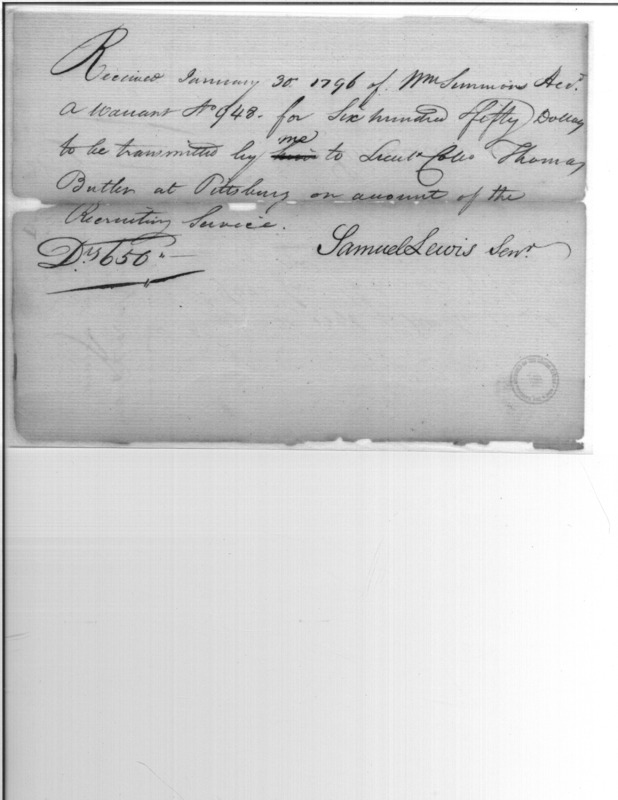 Received January 30. 1796 of Wm Simmons Acct.
a warrant No 948. for Six hundred & fifty Dollars
to be transmitted by me to Lieut. Colo. Thomas
Butler at Pittsburg on account of the
Recruiting Service.
Drs 650 Samuel Lewis Senr